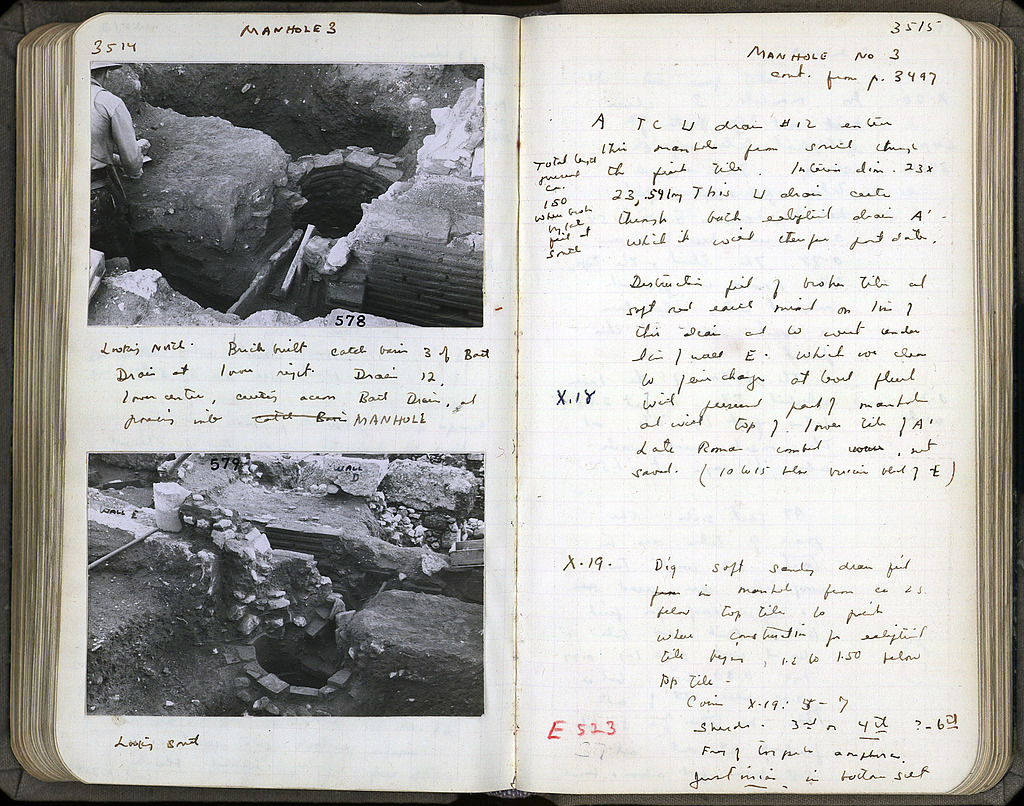 3514
MANHOLE 3
578
Looking North. Brick built catch basin 3 of Bath
Drain at lower right. Drain 12,
lower centre, cutting across Bath Drain, and
into catch Basin MANHOLE
579
WALL D
WALL E
Looking South
3515
MANHOLE NO 3
cont. from p. 3497
A TC U drain #12 enters
this manhole from south through
the first tile. Interior dim. 23 x
23, .59 long This U drain cuts
through bath drain A'
which it would therefore post date.
Total length
preserved
ca.
1.50
when broken
by late
pit at
South
Destruction fill of broken tiles and
soft red earth on line of
this drain and to west under
line of wall E. which we clear
X.18
to join change at bend
with preserved part of manhole
and with top of lower tile of A'
Late Roman combed ware, not
saved. (10 to 15 below level of E)
X.19. Dig soft sandy drain fill
from in manhole from ca 25
below top tile to point
where construction for
tile begins, 1.2 to 1.50 below
top tile -
Coin X-19: 5 - 7
E 523
Sherds. 3rd or 4th ?-6th
Frag amphora.
in bottom